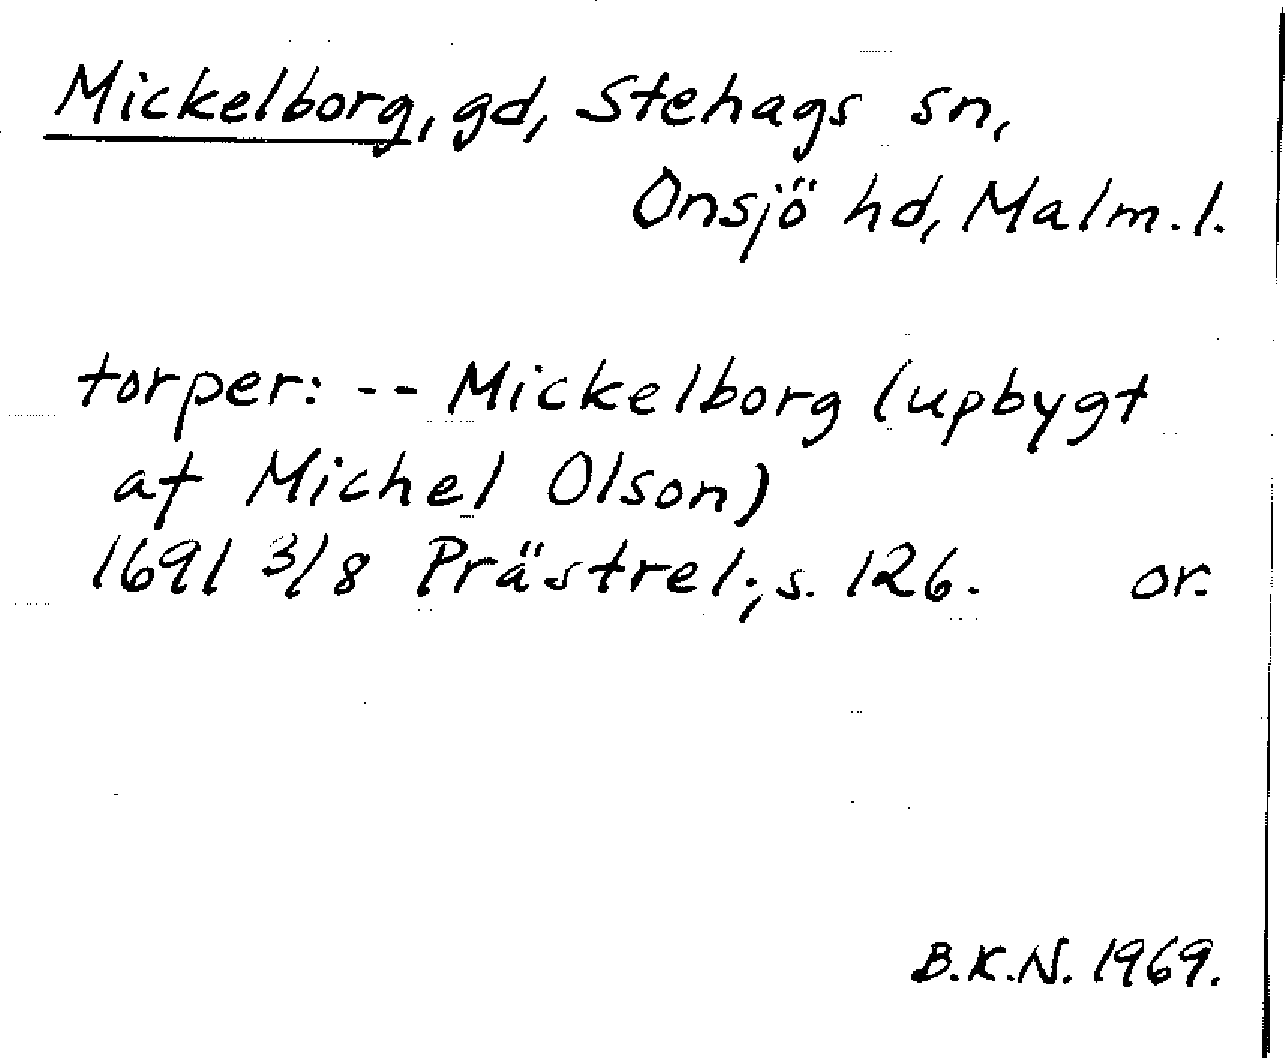 Mickelborg, gd, Stehags sn,
Onsjö hd, Malm.l.
torper: -- Mickelborg (upbygt
af Michel Olson)
1691 3/8 Prästrel., s. 126. or.
B.K.N. 1969.